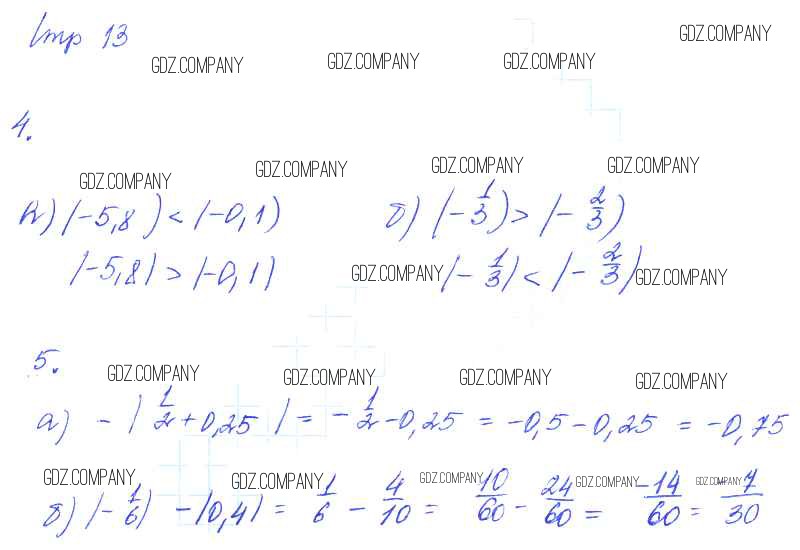 Стр 13
GDZ.COMPANY GDZ.COMPANY GDZ.COMPANY GDZ.COMPANY
4.
GDZ.COMPANY GDZ.COMPANY GDZ.COMPANY GDZ.COMPANY
а) (-5,8) < (-0,1) б) (-1/3) > (-2/3)
|-5,8| > |-0,1| GDZ.COMPANY |-1/3| < |-2/3| GDZ.COMPANY
5.
GDZ.COMPANY GDZ.COMPANY GDZ.COMPANY GDZ.COMPANY
а) -|1/2+0,25| = -1/2-0,25 = -0,5-0,25 = -0,75
GDZ.COMPANY GDZ.COMPANY GDZ.COMPANY GDZ.COMPANY GDZ.COMPANY
б) |-1/6| -|0,4| = 1/6 - 4/10 = 10/60 - 24/60 = -14/60 = -7/30